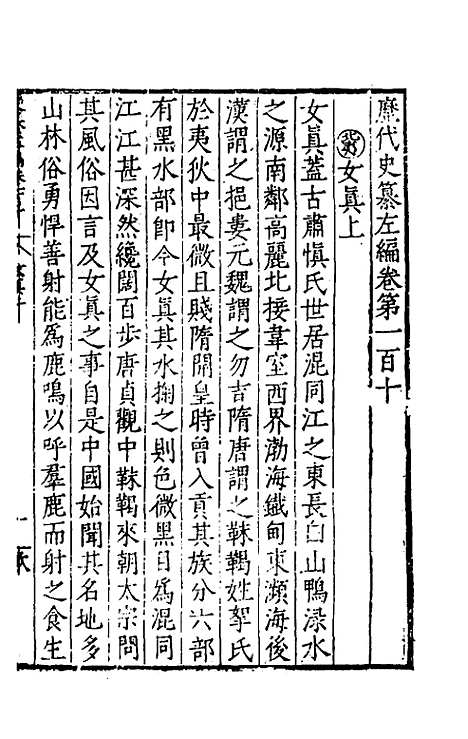 歷代史纂左編卷第一百十
女眞上
女眞蓋古肅愼氏世居混同江之東長白山鴨淥水
之源南鄰高麗北接韋室西界渤海鐵甸東瀕海後
漢謂之挹婁元魏謂之勿吉隋唐謂之靺鞨姓挐氏
於夷狄中最微且賤隋開皇時曾入貢其族分六部
有黑水部卽今女眞其水掬之則色微黑曰爲混同
江江甚深然纔闊百步唐貞觀中靺鞨來朝太宗問
其風俗因言及女眞之事自是中國始聞其名地多
山林俗勇悍善射能爲鹿鳴以呼羣鹿而射之食生